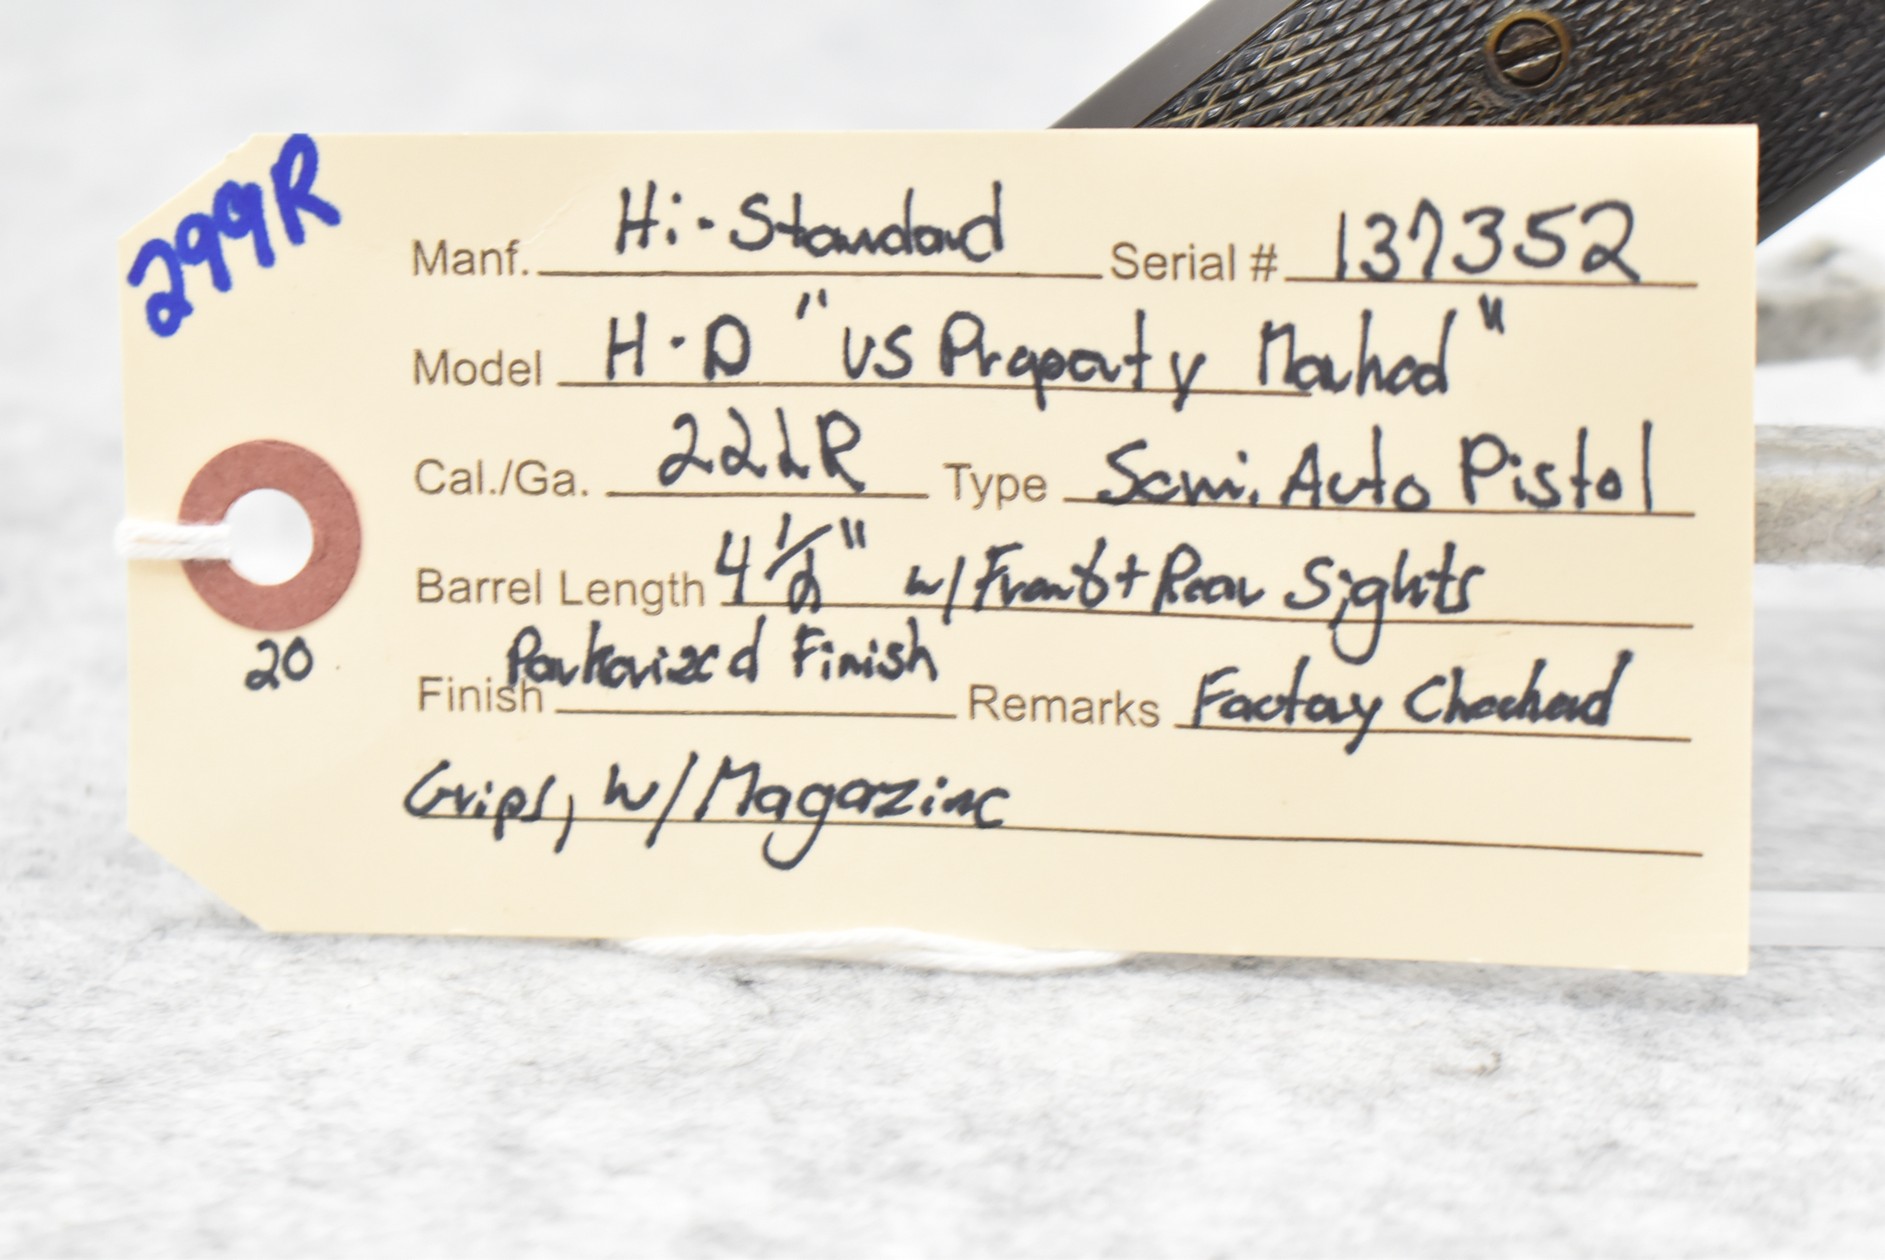 299R
Manf. Hi-Standard Serial # 137352
Model H-D "US Property Marked"
Cal./Ga. 22LR Type Semi. Auto Pistol
Barrel Length 4 1/2" w/ Front + Rear Sights
20
Finish Parkerized Finish Remarks Factory Checkered
Grips, w/ Magazine